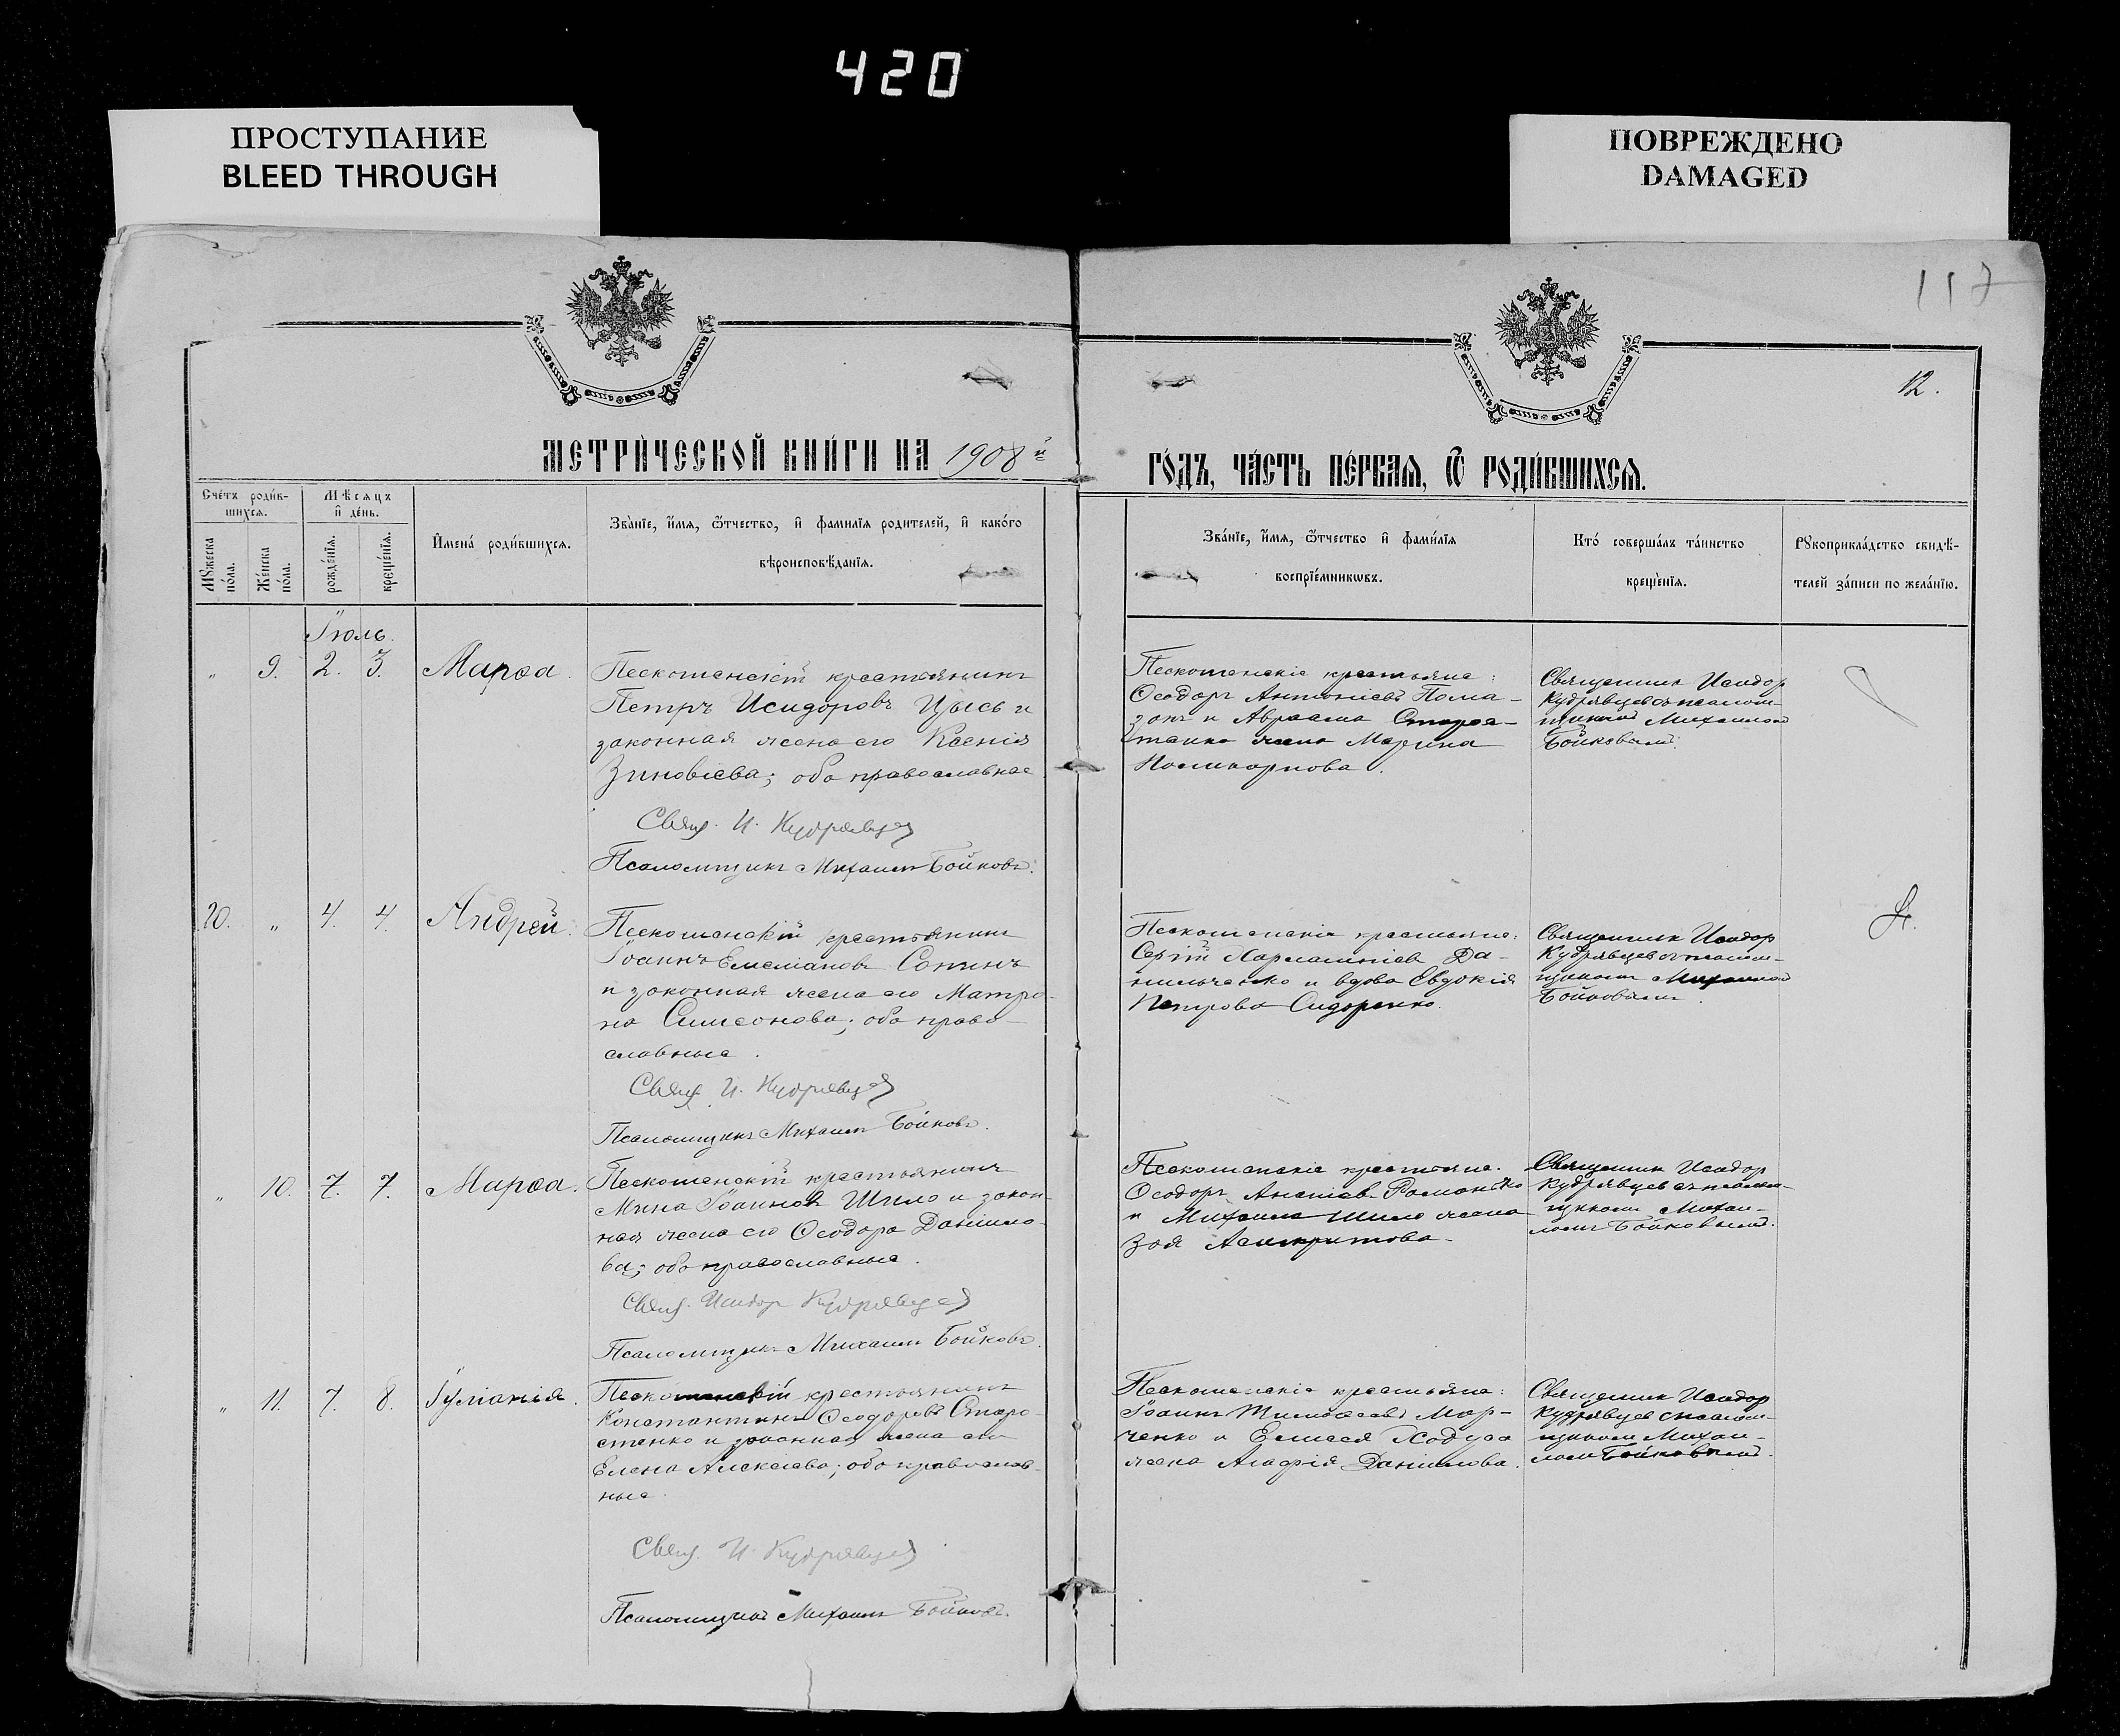 420
ПРОСТУПАНИЕ
BLEED THROUGH
ПОВРЕЖДЕНО
DAMAGED
117
12.
МЕТРИ́ЧЕСКОЙ КНИ́ГИ НА 1908й
ГО́ДЪ, ЧА́СТЬ ПЕ́РВАѦ, Ѿ РОДИ́ВШИХСѦ.
Сче́тъ роди́в-
шихсѧ.
Мꙋ́жеска по́ла.
Же́нска по́ла.
Мѣ́сѧцъ
и҆ де́нь.
рожде́нїѧ.
креще́нїѧ.
И҆мена̀ роди́вшихсѧ.
Зва́нїе, и҆́мѧ, ѻ҆́тчество, и҆ фамилїѧ родителей, и҆ како́го
вѣроисповѣ́данїѧ.
Зва́нїе, и҆́мѧ, ѻ҆́тчество и҆ фами́лїѧ
воспрїе́мникѡвъ.
Кто̀ соверша́лъ та́инство
креще́нїѧ.
Рꙋкоприкла́дство свидѣ́-
телей за́писи по жела́нїю.
Іюль.
„ 9. 2. 3. Марѳа.
Пескошенскій крестьянинъ
Петръ Исидоровъ Цысь и
законная жена его Ксенія
Зиновіева; оба православные
Свящ. И. Кудрявцев
Псаломщикъ Михаилъ Бойковъ.
Пескошенскіе крестьяне:
Ѳеодоръ Антоніевъ Пома-
зонъ и Авраама Старос-
тенка жена Марина
Поликарпова.
Священник Исидор
Кудрявцев съ псалом-
щиком Михаилом
Бойковым.
10. „ 4. 4. Андрей.
Пескошенскій крестьянинъ
Іоаннъ Емеліановъ Сопинъ
и законная жена его Матро-
на Симеонова; оба право-
славные.
Свящ. И. Кудрявцев
Псаломщикъ Михаилъ Бойковъ.
Пескошенскіе крестьяне:
Сергій Харлампіев Да-
нильченко и вдова Евдокія
Петрова Сидоренко.
Священник Исидор
Кудрявцев съ псалом-
щиком Михаилом
Бойковым.
„ 10. 7. 7. Марѳа.
Пескошенскій крестьянинъ
Мина Іоаннов Шило и закон-
ная жена его Ѳеодора Даніило-
ва; оба православные.
Свящ. Исидор Кудрявцев
Псаломщикъ Михаилъ Бойковъ.
Пескошенскіе крестьяне.
Ѳеодоръ Ананіев Романько
и Михаила Шило жена
Зоя Асигкритова.
Священник Исидор
Кудрявцев съ псалом-
щиком Михаи-
лом Бойковым.
„ 11. 7. 8. Іуліанія.
Пескошенскій крестьянинъ
Константинъ Ѳеодоровъ Старо-
стенко и законная жена его
Елена Алексіева; оба православ-
ные.
Свящ. И. Кудрявцев
Псаломщикъ Михаилъ Бойковъ.
Пескошенскіе крестьяне:
Іоаннъ Тимоѳеевъ Мар-
ченко и Елисея Ходуса
жена Агафія Даніилова.
Священник Исидор
Кудрявцев с псалом-
щиком Михаи-
лом Бойковым.